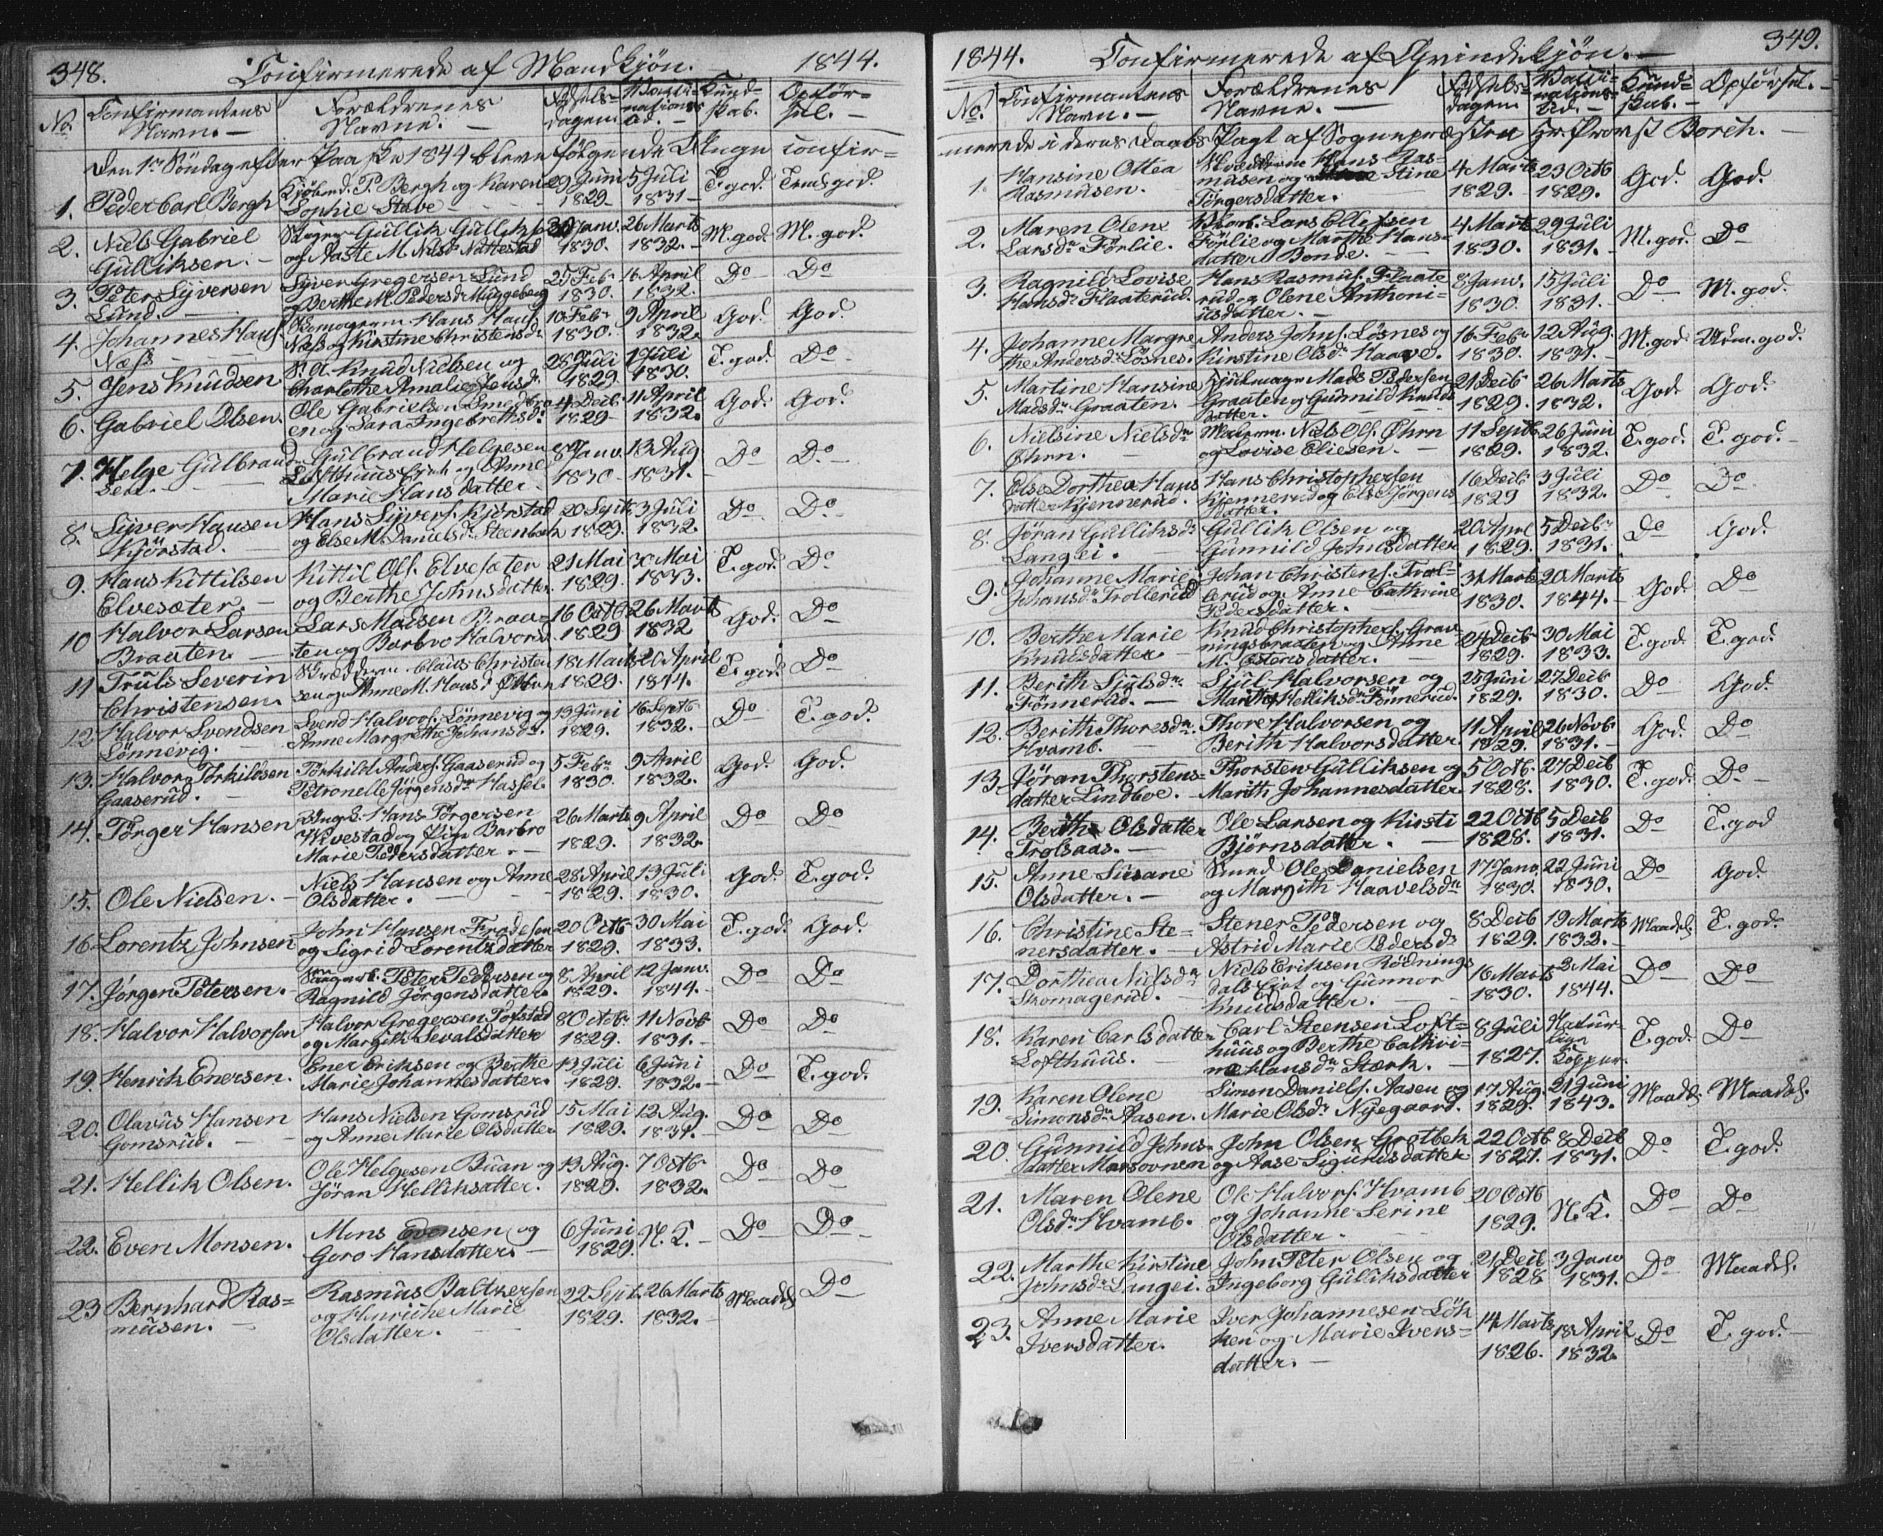 348. Confirmerede af Mandkjøn. 1844.
No. Confirmantens Navn. — Forældrenes Navne. — Fødsels-dagen. Vacci-nations Tid. — Kund-skab. Opfør-sel. —
Den 1ste Søndag efter Paaske 1844 bleve følgende Unge confir=
1. Peder Carl Bergh Kjøbmd. P. Bergh og Karen Sophie Stabe 29 Juni 1829 5 Juli 1831 T. god. Temgod.
2. Niels Gabriel Gulliksen. — Gullik Gulliks. og Aaste M. Nilsdr Nattestad 20 Janv. 1830. 26 Marts 1832. M. god. M. god.
3. Peter Syversen Lund. Syver Gregersen Lund og Berthe M. Pedersdr Muggeberg 25 Feb. 1830. 16 April 1832. Do Do
4. Johannes Hans. Næss. Hans Hans. Næss og Kirstine Christensdr 10 Febr 1830. 9 April 1832. God. God.
5. Jens Knudsen Knud Nielsen og Charlotte Amalie Jensdr 28 Juli 1829. 1 Juli 1830. T. god. Do
6. Gabriel Olsen. Ole Gabrielsen Smedbro en og Sara Ingebrethsdr 4 Decb. 1829 11 April 1832. God. God.
7. Helge Gulbrand=sen. Gulbrand Helgesen Lofthuus og Anne Marie Hansdatter. 8 Janv. 1830 13 Aug 1831. Do Do
8. Syver Hansen Kjørstad. Hans Syvers. Kjørstad og Else M. Danielsdr Steenbek 20 Septb 1829. 3 Juli 1832. Do Do
9. Hans Kittilsen Elvesæter. — Kittil Ols. Elvesæter og Berthe Johnsdatter. 21 Mai 1829. 30 Mai 1833. T. god. Do
10 Halvor Larsen Braaten. Lars Madsen Braa=ten og Barbro Halvorsd. 16 Octb 1829 26 Marts 1832 God. Do
11 Truls Severin Christensen. Claus Christen sen og Anne M. Hansd. 18 Marts 1829. 20 April 1844. T. god. Do
12 Halvor Svendsen Lønnevig. Svend Halvors. Lønnevig og Anne Margrethe Johansdr. 13 Juni 1829. 16 Septb 1832. Do T. god.
13. Halvor Torkildsen Gaaserud. Torkild Anders. Gaaserud og Petronelle Jørgensdr Hassel. 5 Febr 1830. 9 April 1832. God. God.
14. Törger Hansen Hans Törgersen Vivestad og Barbro Marie Pedersdatter. 26 Marts 1829. 9 April 1832. Do Do
15. Ole Nielsen. — Niels Hansen og Anne Olsdatter. 28 April 1829. 13 Juli 1830. God. T. god.
16 Lorentz Johnsen John Hansen og Sigrid Lorentzdatter 20 Octb 1829. 30 Mai 1833. T. god. God.
17. Jørgen Petersen. Peter Pedersen og Ragnild Jørgensdatter. 8 April 1829. 12 Janv. 1844. Do Do
18. Halvor Halvorsen Halvor Gregersen Tofstad og Margit Sevalsdatter 8 Octob. 1829. 11 Novb 1831. Do Do
19. Henrik Enersen. Ener Eriksen og Berthe Marie Johannesdatter. 13 Juli 1829. 6 Juni 1832. Do T. god.
20. Olavus Hansen Gomsrud. Hans Nielsen Gomsrud og Anne Marie Olsdatter 15 Mai 1829. 13 Aug. 1831. Do Do
21. Hellik Olsen. Ole Helgesen Buan og Jøran Helliksatter. 13 Aug. 1829. 7 Octb 1832. Do Do
22. Even Monsen. Mons Evensen og Goro Hansdatter. 6 Juni 1829. N. K. Do Do
23 Bernhard Ras=musen. Rasmus Baltzersen og Henriche Marie Olsdatter. 22 Sept. 1829. 26 Marts 1832. Maadel. Do
1844. Confirmerede af Qvindekjøn. — 349.
No. Confirmantens Navn. — Forældrenes Navne. — Fødsels-dagen. Vacci-nations-Tid. — Kund-skab. — Opførsel. —
merede i deres Daabs Pagt af Sognepræsten Hr. Provst Borch. —
1. Hansine Ottea Rasmusen. Hans Ras=musen og Stine Törgersdatter. 4 Marts 1829. 23 Octb 1829. God. God.
2. Maren Olene Larsdr Förlie. Lars Ellefsen Förlie og Marthe Hans=datter Bonde. 4 Marts 1830. 29 Juli 1831. M. god. Do
3. Ragnild Lovise Hansdr Flaaterud. Hans Rasmus. Flaate rud og Olene Anthoni=usdatter. 8 Janv. 1830. 15 Juli 1831. Do M. god.
4. Johanne Margre the Andersdr Løsnes. Anders Johns. Løsnes og Kirstine Olsdr Haave. 16 Feb. 1830. 12 Aug. 1831. M. god. Udm. god.
5. Martine Hansine Madsdr Graaten. Mads Pedersen Graaten og Gunnild Knuds datter. 21 Decb 1829. 26 Marts 1832. God God.
6. Nielsine Nielsdr Øhrn. Niels Ols. Øhrn og Lovise Eliesen. 11 Septb 1829. 26 Juni 1832. T. god. T. god.
7. Else Dorthea Hans datter Kjennerud. Hans Christophersen Kjennerud og Else Jörgens datter. 16 Decb 1829 3 Juli 1832. Do Do
8. Jøran Gulliksdr Langei. Gullik Olsen og Gunnild Johnsdatter 20 April 1829. 5 Decb. 1831. Do God.
9. Johanne Marie Johansdr Trollerud Johan Christens. Trol=lerud og Anne Cathrine Pedersdatter. 31 Marts 1830. 20 Marts 1844. God Do
10. Berthe Marie Knudsdatter. Knud Christophers. Grav ningsbraaten og Anne M. Estensdatter. 24 Decb 1829. 30 Mai 1833. T. god. T. god.
11. Berith Sjulsdr Fönnerud. Sjul Halvorsen og Marthe Helliksdr Fönnerud. 25 Juni 1829. 27 Decb 1830. Do God.
12. Berith Thoresdr Hvamb. Thore Halvorsen og Berith Halvorsdatter. 11 April 1829. 26 Novb. 1831. God. Do
13. Jøran Thorstens=datter Lindboe. Thorsten Gulliksen og Marith Johannesdatter. 5 Octb. 1828. 27 Decb 1830. T. god. Do
14. Berthe Olsdatter Trolsaas. — Ole Larsen og Kirsti Björnsdatter. 22 Octb 1828. 5 Decb 1831. Do T. god
15. Anne Susane Olsdatter. — Smed Ole Danielsen og Margith Haavelsdr 17 Janv. 1830. 22 Juni 1830. Do God
16. Christine Ste=nersdatter. Stener Pedersen og Astrid Marie Pedersd. 8 Decb 1829. 19 Marts 1832. Maadel. T. god.
17. Dorthea Nielsdr Skomagerud. Niels Eriksen Rødnings dalsejet og Gunnor Knudsdatter. 16 Marts 1830. 2 Mai 1844. Do Do
18. Karen Carlsdatter Lofthuus. Carl Steensen Loft=huus og Berthe Cathri=ne Hansdr Stærk. 8 Juli 1827. Natur-lige Kopper. T. god. Do
19. Karen Olene Simonsdr Aasen. Simon Daniels. Aasen og Marie Olsdr Nyegaard. 17 Aug. 1829. 21 Juni 1843. Maadel. Maadel.
20. Gunnild Johns=datter Marsovnen John Olsen Grotbek og Aase Sigurdsdatter 22 Octb 1827. 8 Decb 1831. Do T. god.
21. Maren Olene Olsdr Hvamb. Ole Halvors. Hvamb og Johanne Serine Olsdatter. 20 Octb 1829. N. K. Do Do
22. Marthe Kirstine Johnsdr Langei. John Peter Olsen og Ingeborg Gulliksdatter 21 Decb 1828 3 Janv 1831. Do Maadel.
23. Anne Marie Iversdatter. Iver Johannesen Løk ken og Marie Ivers=datter. — 14 Marts 1826. 18 April 1832. Do T. god.